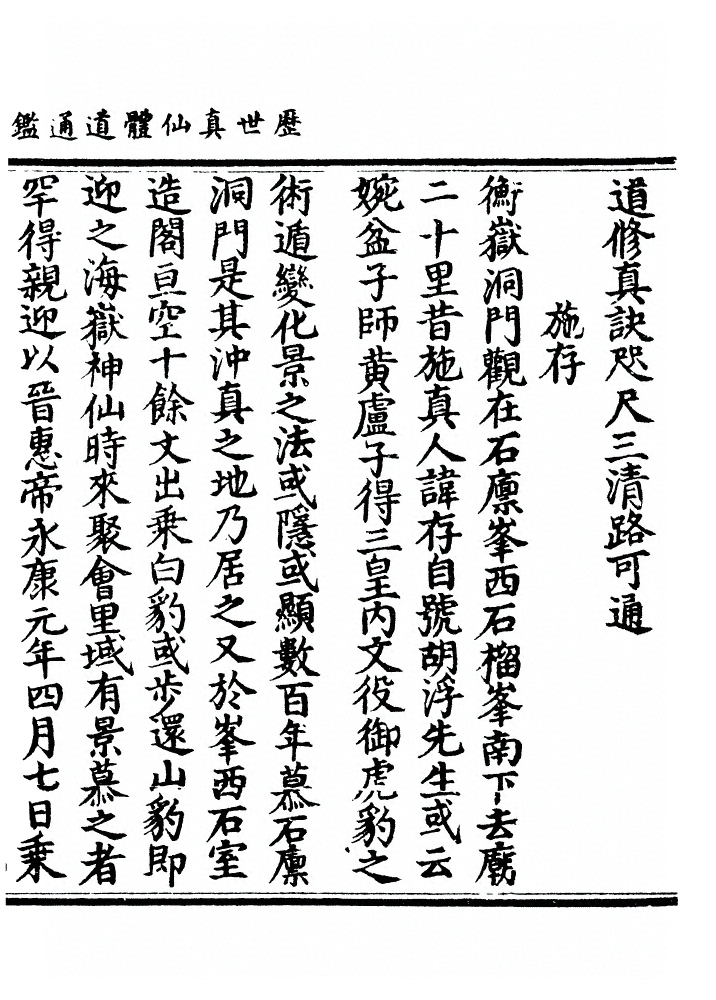 歷世真仙體道通鑑
道修真訣咫尺三清路可通
施存
衡嶽洞門觀在石廪峯西石榴峯南下去廟
二十里昔施真人諱存自號胡浮先生或云
婉盆子師黄盧子得三皇内文役御虎豹之
術遁變化景之法或隱或顯數百年慕石廪
洞門是其沖真之地乃居之又於峯西石室
造閣亘空十餘文出乗白豹或步還山豹即
迎之海嶽神仙時來聚會里域有景慕之者
罕得親迎以晉惠帝永康元年四月七日乗